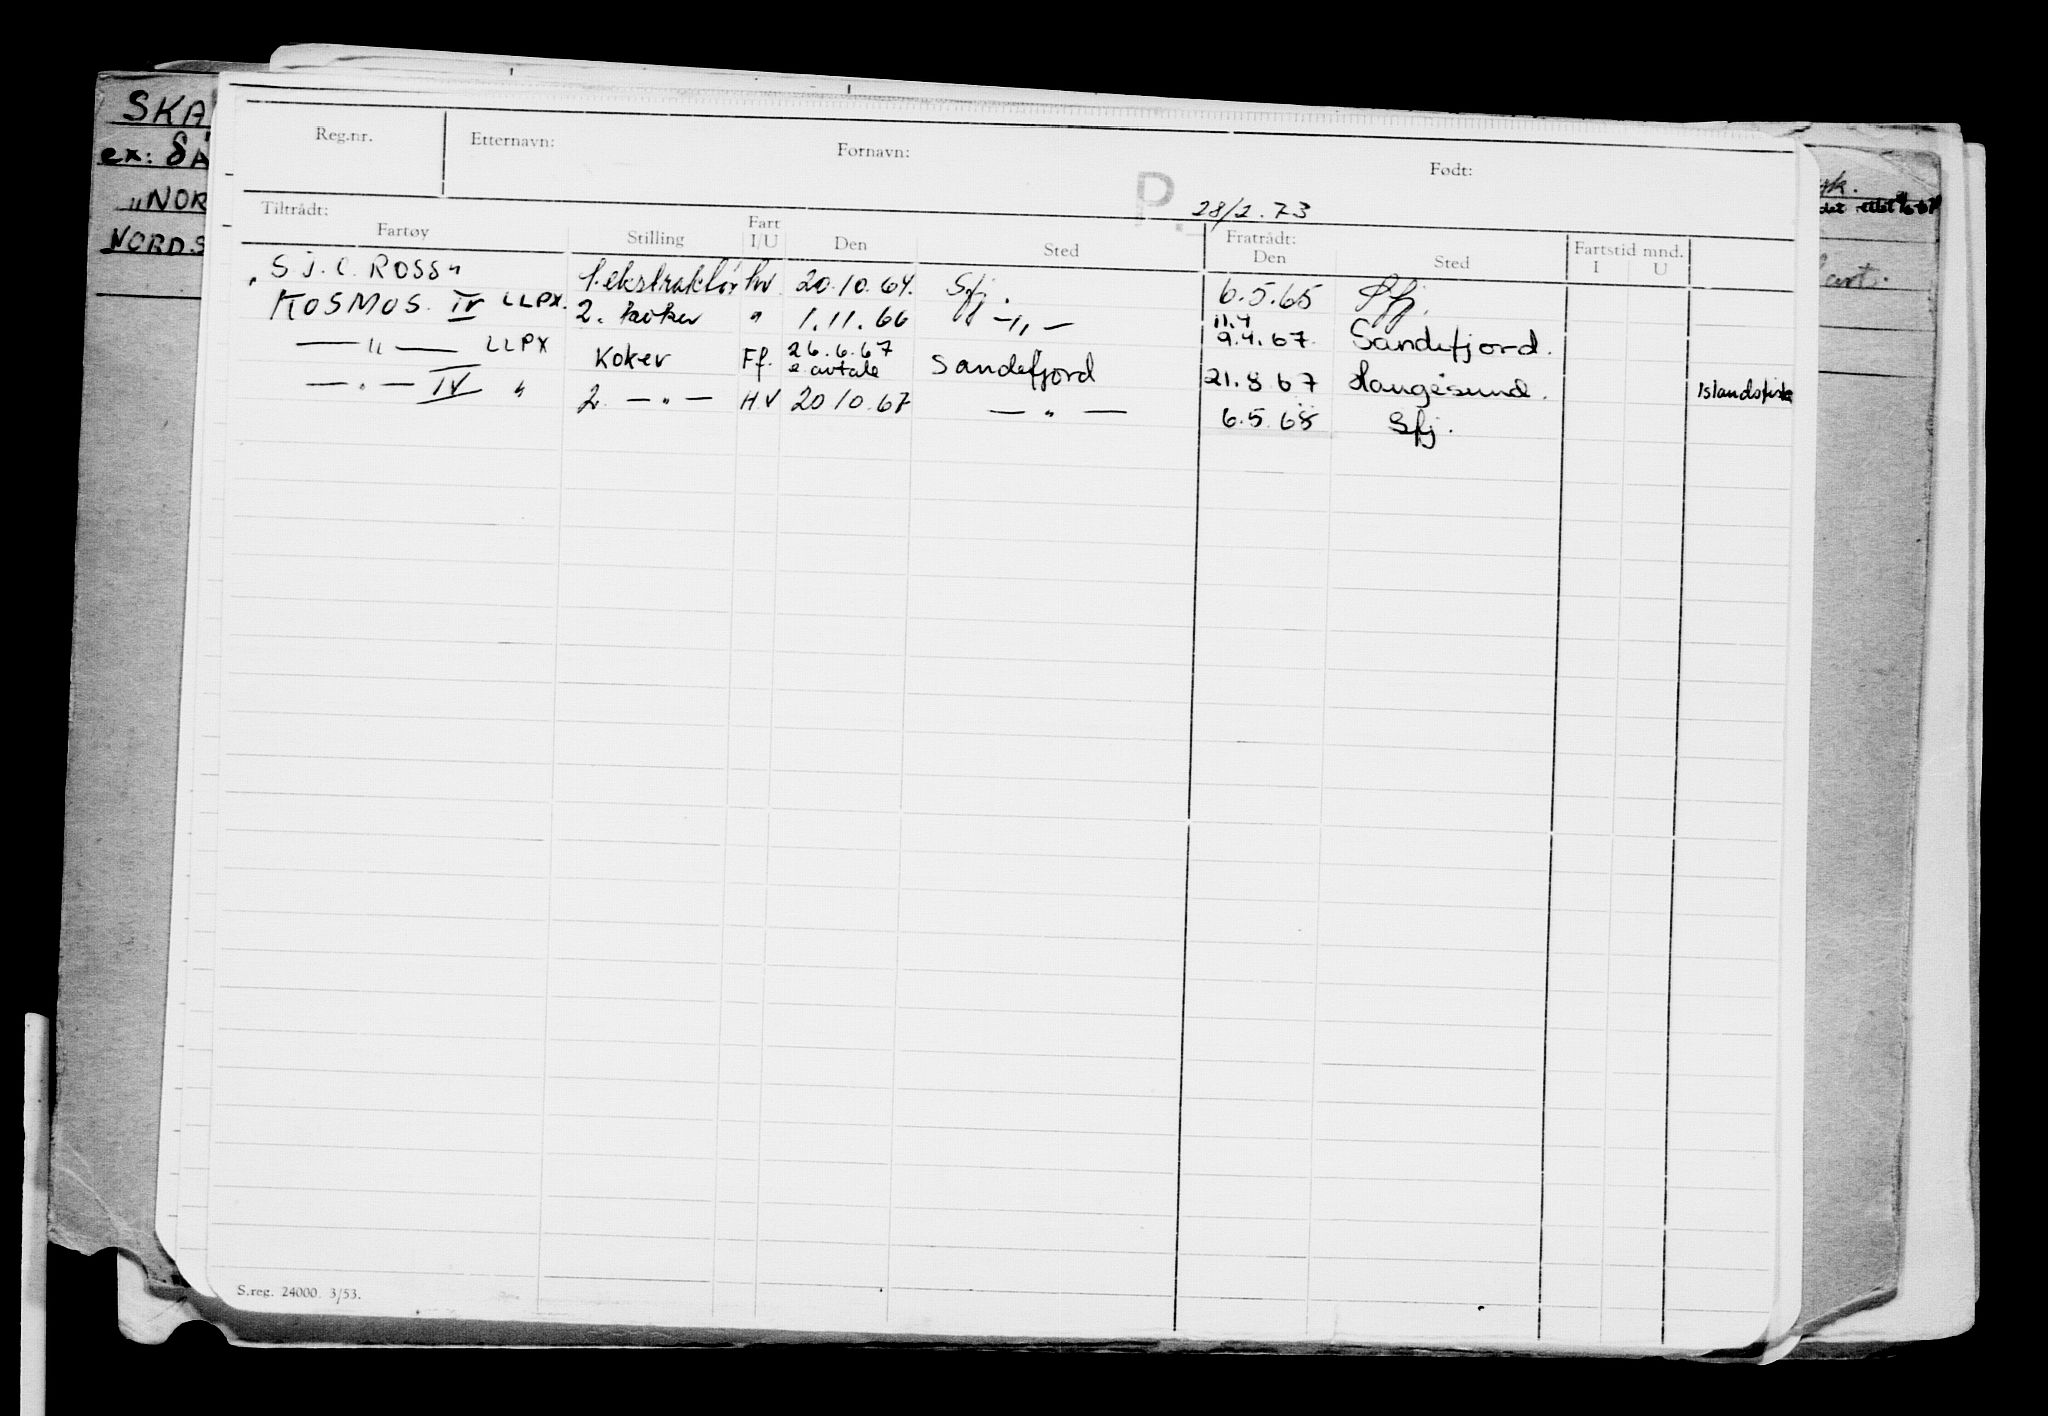 SKA
ex: SA
"NOR
NORDS
Reg.nr. Etternavn: Fornavn: Født:
P. 28/2.73
Tiltrådt: Fratrådt: Fartstid mnd.
Fartøy Stilling Fart I/U Den Sted Den Sted I U
"S J. C. ROSS" 1.ekstraktør hv 20.10.64. Sfj. 6.5.65 Sfj.
KOSMOS IV LLPX. 2. koker " 1.11.66 — " — 11.4 9.4.67. Sandefjord.
— " — LLPX Koker Ff. 26.6.67 e. avtale Sandefjord 21.8.67 Haugesund. Islandsfiske
— " — IV " 2. — " — H.V 20.10.67 — " — 6.5.68 Sfj.
S.reg. 24000. 3/53.
k.
art.